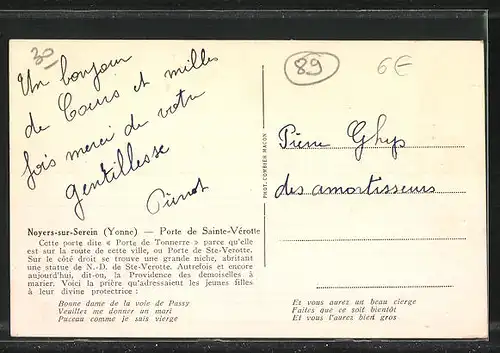 30
89
6€
Un bonjour
de Cours et milles
fois merci de votre
gentillesse
Pierrot
Pierre Ghys
des amortisseurs
PHOT. COMBIER MACON
Noyers-sur-Serein (Yonne) — Porte de Sainte-Vérotte
Cette porte dite « Porte de Tonnerre » parce qu'elle
est sur la route de cette ville, ou Porte de Ste-Verotte.
Sur le côté droit se trouve une grande niche, abritant
une statue de N.-D. de Ste-Verotte. Autrefois et encore
aujourd'hui, dit-on, la Providence des demoiselles à
marier. Voici la prière qu'adressaient les jeunes filles
à leur divine protectrice :
Bonne dame de la voie de Passy
Veuillez me donner un mari
Puceau comme je sais vierge
Et vous aurez un beau cierge
Faites que ce soit bientôt
Et vous l'aurez bien gros